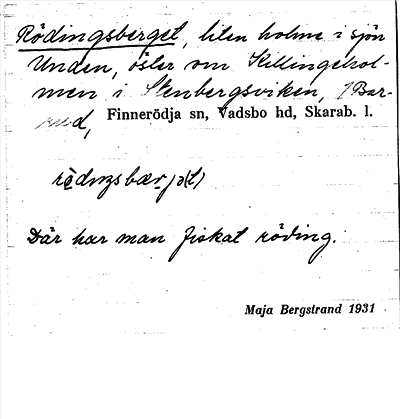 Rödingsberget, liten holme i sjön
Unden, öster om Killingehol-
men i Stenbergsviken, 1 Bar-
rud, Finnerödja sn, Vadsbo hd, Skarab. l.
Där har man fiskat röding.
Maja Bergstrand 1931